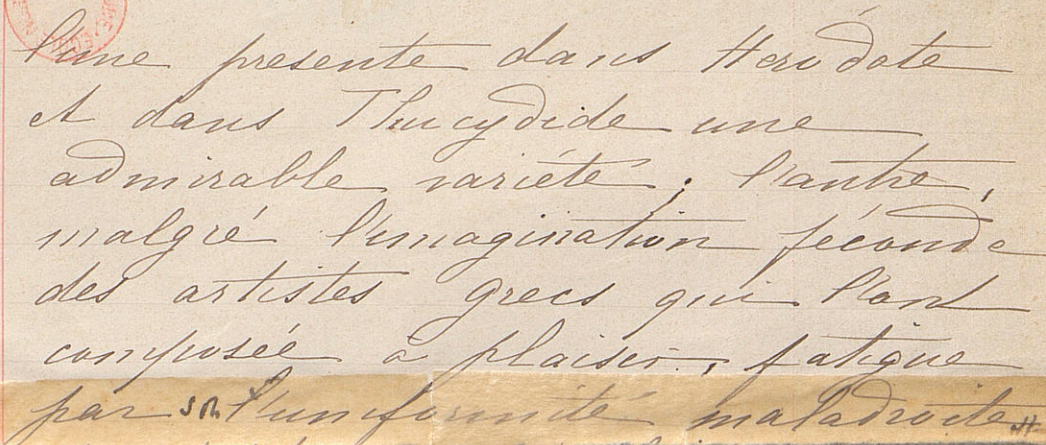 l'une presente dans Hérodote
et dans Thucydide une
admirable variété ; l'autre,
malgré l'imagination féconde
des artistes grecs qui l'ont
composée à plaisir, fatigue
par son l'uniformité maladroite